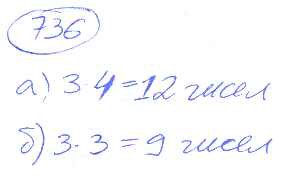 736
а) 3·4=12 чисел
б) 3·3=9 чисел